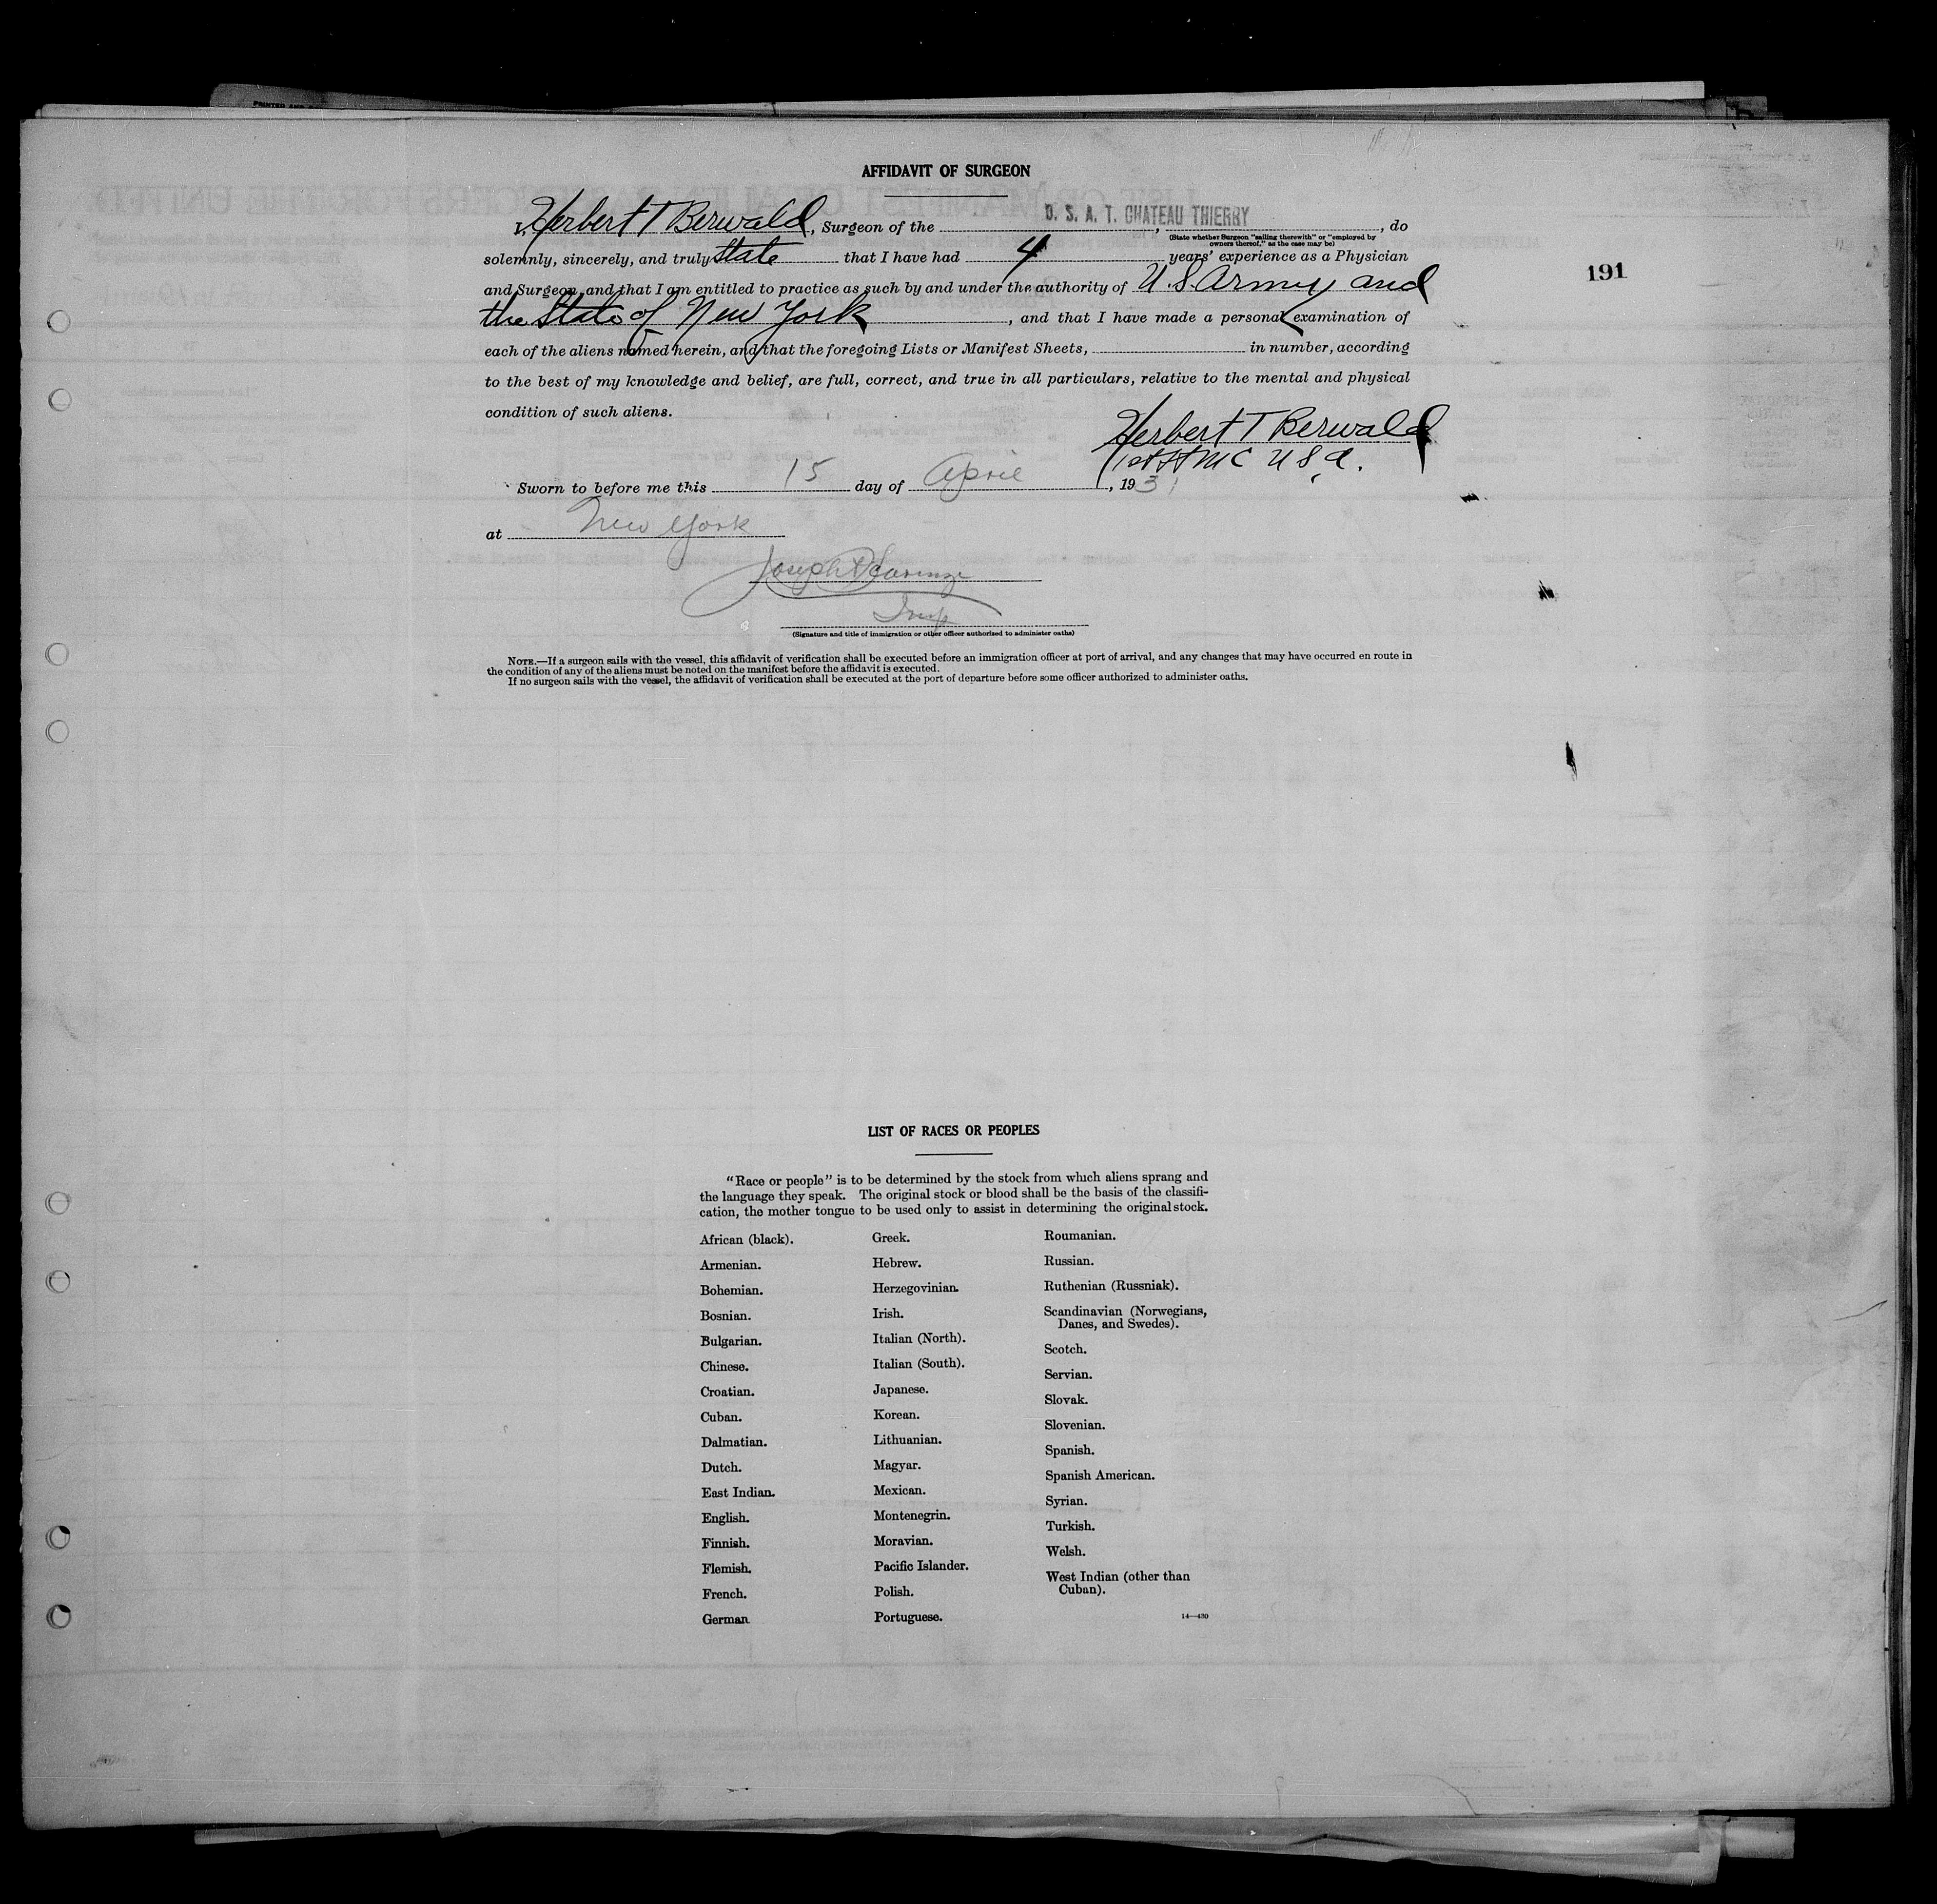 AFFIDAVIT OF SURGEON
I, Herbert T Berwald, Surgeon of the U. S. A. T. CHATEAU THIERRY, , do
(State whether Surgeon "sailing therewith" or "employed by
owners thereof," as the case may be)
solemnly, sincerely, and truly state that I have had 4 years' experience as a Physician
and Surgeon and that I am entitled to practice as such by and under the authority of U.S. Army and
the State of New York , and that I have made a personal examination of
each of the aliens named herein, and that the foregoing Lists or Manifest Sheets, in number, according
to the best of my knowledge and belief, are full, correct, and true in all particulars, relative to the mental and physical
condition of such aliens.
Herbert T Berwald
1st Lt MC U S A.
Sworn to before me this 15 day of April , 1931
at New York
Joseph
Insp
(Signature and title of immigration or other officer authorized to administer oaths)
NOTE.—If a surgeon sails with the vessel, this affidavit of verification shall be executed before an immigration officer at port of arrival, and any changes that may have occurred en route in
the condition of any of the aliens must be noted on the manifest before the affidavit is executed.
If no surgeon sails with the vessel, the affidavit of verification shall be executed at the port of departure before some officer authorized to administer oaths.
191
LIST OF RACES OR PEOPLES
"Race or people" is to be determined by the stock from which aliens sprang and
the language they speak. The original stock or blood shall be the basis of the classifi-
cation, the mother tongue to be used only to assist in determining the original stock.
African (black).
Armenian.
Bohemian.
Bosnian.
Bulgarian.
Chinese.
Croatian.
Cuban.
Dalmatian.
Dutch.
East Indian.
English.
Finnish.
Flemish.
French.
German
Greek.
Hebrew.
Herzegovinian.
Irish.
Italian (North).
Italian (South).
Japanese.
Korean.
Lithuanian.
Magyar.
Mexican.
Montenegrin.
Moravian.
Pacific Islander.
Polish.
Portuguese.
Roumanian.
Russian.
Ruthenian (Russniak).
Scandinavian (Norwegians,
Danes, and Swedes).
Scotch.
Servian.
Slovak.
Slovenian.
Spanish.
Spanish American.
Syrian.
Turkish.
Welsh.
West Indian (other than
Cuban).
14—430